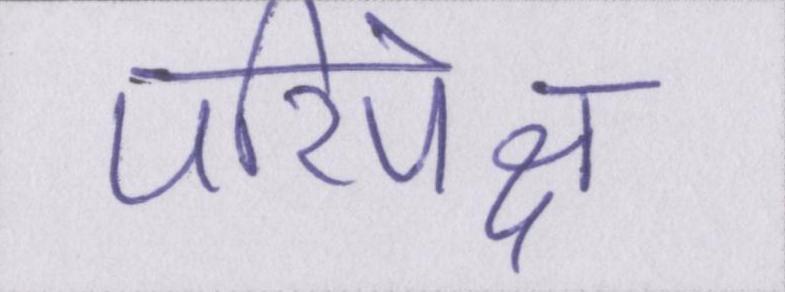 परिपेक्ष